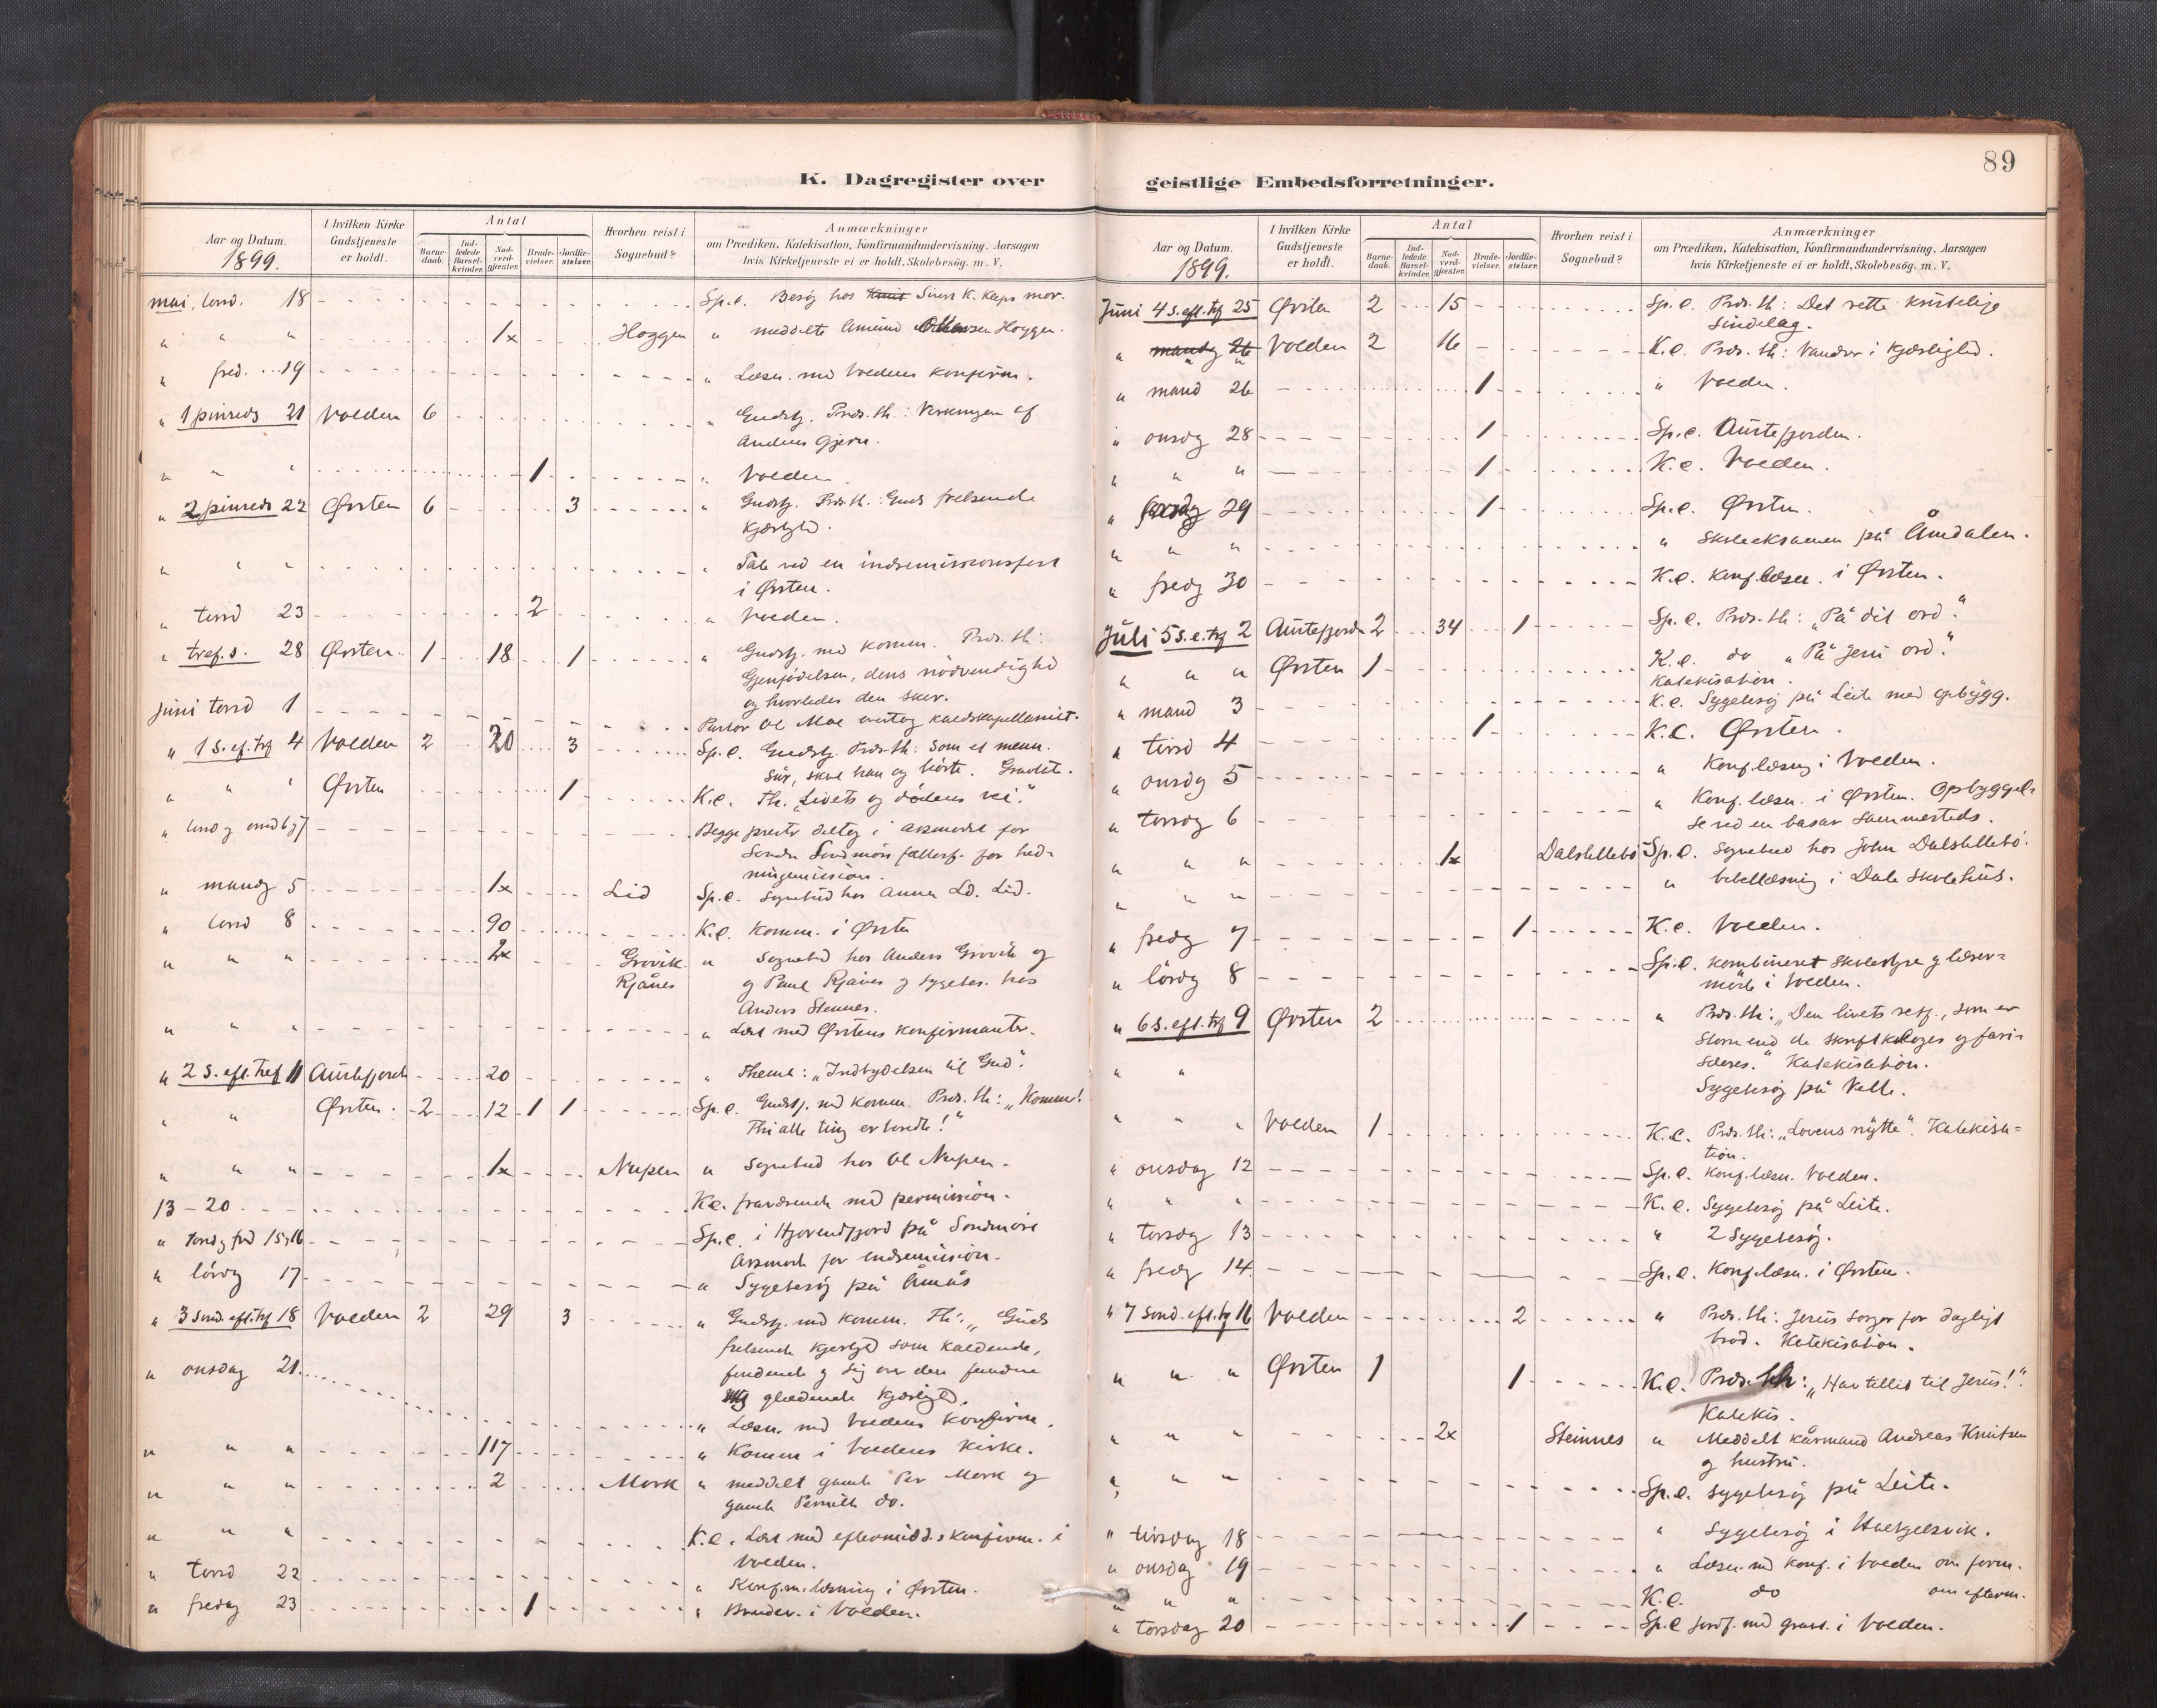 89
K. Dagregister over
geistlige Embedsforretninger.
Aar og Datum.
1899.
I hvilken Kirke
Gudstjeneste
er holdt.
Antal
Barne-
daab.
Ind-
ledede
Barsel-
kvinder.
Nad-
verd-
gjester.
Brude-
vielser.
Jordfæ-
stelser.
Hvorhen reist i
Sognebud?
Anmærkninger
om Prædiken, Katekisation, Konfirmandundervisning. Aarsagen
hvis Kirketjeneste ei er holdt, Skolebesög. m. V.
mai, torsd. 18 Sp.e. Besög hos Knut K. mor.
" " " 1x Hoggen " meddelte Amund Hoggen.
" fred. 19 " Læsn. med Voldens konfirm.
" 1 pinseds 21 Volden 6 " Gudstj. Præs. th.: Virkningen af
Andens gjern.
" " " 1 " Volden.
" 2 pinseds 22 Ørsten 6 3 " Gudstj. Præs. th.: Guds frelsende
kjærlighd.
" " " " Tale ved en indremissionsfest
i Ørsten.
" tirsd 23 2 " Volden.
" tref.s. 28 Ørsten 1 18 1 " Gudstj. med komm. Præs. th:
Gjenfödelsen, dens nödvendighd
og hvorledes den sker.
Juni torsd 1 Pastor Ol. Moe overtog kaldskapellaniet.
" 1 S. ef. trf 4 Volden 2 20 3 Sp.e. Gudstj. Præs. th: Som et menn.
sår, skal han og höste.
" " " Ørsten 1 K.e. Th. "Livets og dödens vei."
Begge prester deltog i årsmödet for
Söndre Söndmörs fællesf. for hed-
ningemission.
" mandg 5 1x Lid Sp.e. Sognebud hos Anna Ld. Lid.
" torsd 8 90 K.e. Komm. i Ørsten
" " " 2x Grovik
Rjånes " Sognebud hos Anders Grovik og
og Paul Rjånes og sygebes. hos
Anders Steinnes.
" " " " Læst med Ørstens konfirmanter.
" 2 S. eft. tref 11 Austefjord 20 " Thema: "Indbydelsen til Gud".
" " Ørsten. 2 12 1 1 Sp.e. Gudstj. med komm. Præs. th: "Komm!
Thi alle ting er beredte!"
" " " 1x Nupen " Sognebud hos Ol Nupen.
13 - 20 K.e. fraværende med permission.
" torsd og fred 15 og 16 Sp.e. i Hjörendfjord på Söndmöre
Årsmöde for indremission.
" lördg 17 " Sygebesög på Åmås
" 3 Sönd. eft. trf 18 Volden 2 29 3 " Gudstj. med komm. Th.: "Guds
frelsende kjærlighd som kaldende,
findende og sig over den fundne
glædende kjærlighd.
" onsdag 21 " Læsn. med Voldens konfirm.
" " " 117 " Komm i Voldens kirke.
" " " 2 Mork " meddelt gamle Per Mork og
gamle Pernille do.
" " " K.e. Læst med eftermidd.s konfirm. i
Volden.
" torsd 22 " Konf.m. læsning i Ørsten.
" fredag 23 1 " Brudev. i Volden.
Aar og Datum.
1899.
I hvilken Kirke
Gudstjeneste
er holdt.
Antal
Barne-
daab.
Ind-
ledede
Barsel-
kvinder.
Nad-
verd-
gjester.
Brude-
vielser.
Jordfæ-
stelser.
Hvorhen reist i
Sognebud?
Anmærkninger
om Prædiken, Katekisation, Konfirmandundervisning. Aarsagen
hvis Kirketjeneste ei er holdt, Skolebesög. m. V.
Juni 4 S. eft. trf 25 Ørsten 2 15 Sp.e. Præs. th: Det rette kristelige
sindelag.
" mandg 26 Volden 2 16 K.e. Præs. th: Vandrer i kjærlighed.
" mand 26 1 " Volden.
" onsdg 28 1 Sp.e. Austefjorden.
" " " 1 K.e. Volden.
" 29 1 Sp.e. Ørsten.
" " " " Skoleeksamen på Åmdalen.
" fredg 30 K.e. konf.læsn. i Ørsten.
Juli 5 S.e.trf 2 Austefjord 2 34 1 Sp.e. Præs. th: "På dit ord".
" " " Ørsten 1 K.e. do "På Jesu ord".
Katekisation.
" mand 3 K.e. Sygebesög på Leite med opbygg.
" tirsd 4 1 K.e. Ørsten.
" onsdg 5 " Konf.læsng i Volden.
" torsdg 6 " Konf.læsn. i Ørsten. Opbyggel-
se ved en basar sammesteds.
" " " 1x Dalslillebö Sp.e. Sognebud hos John Dalslillebö.
" " " " bibellæsning i Dale skolehus.
" fredg 7 1 K.e. Volden.
" lördg 8 Sp.e. kombineret skolestyre og lærer-
möde i Volden.
" 6 S. eft. trf 9 Ørsten 2 " Præs. th: "Den livets retf., som er
större end de skriftkloges og fari-
sæeres." Katekisation.
" " Sygebesög på Velle.
" " " Volden 1 K.e. Præs. th: "Lovens nytte". Katekisa-
tion.
" onsdag 12 Sp.e. Konf.læsn. Volden.
" " " K.e. Sygebesög på Leite.
" torsdg 13 " 2 Sygebesög.
" fredg 14 Sp.e. Konf.læsn. i Ørsten.
" 7 Sönd. eft. trf 16 Volden 2 " Præs. th: Jesus sorger for dagligt
bröd. Katekisation.
" " " Ørsten 1 1 K.e. Præs. th: "Hav tillid til Jesus!".
Katekis.
" " " 2x Steinnes " Meddelt kårmand Andreas Knutsen
og hustru.
" " " Sp.e. sygebesög på Leite.
" tirsdag 18 " Sygebesög i
" onsdag 19 " Læsn. md konf. i Volden om form.
" " " K.e. do om efterm.
" torsdag 20 1 Sp.e jordf. med i Volden.